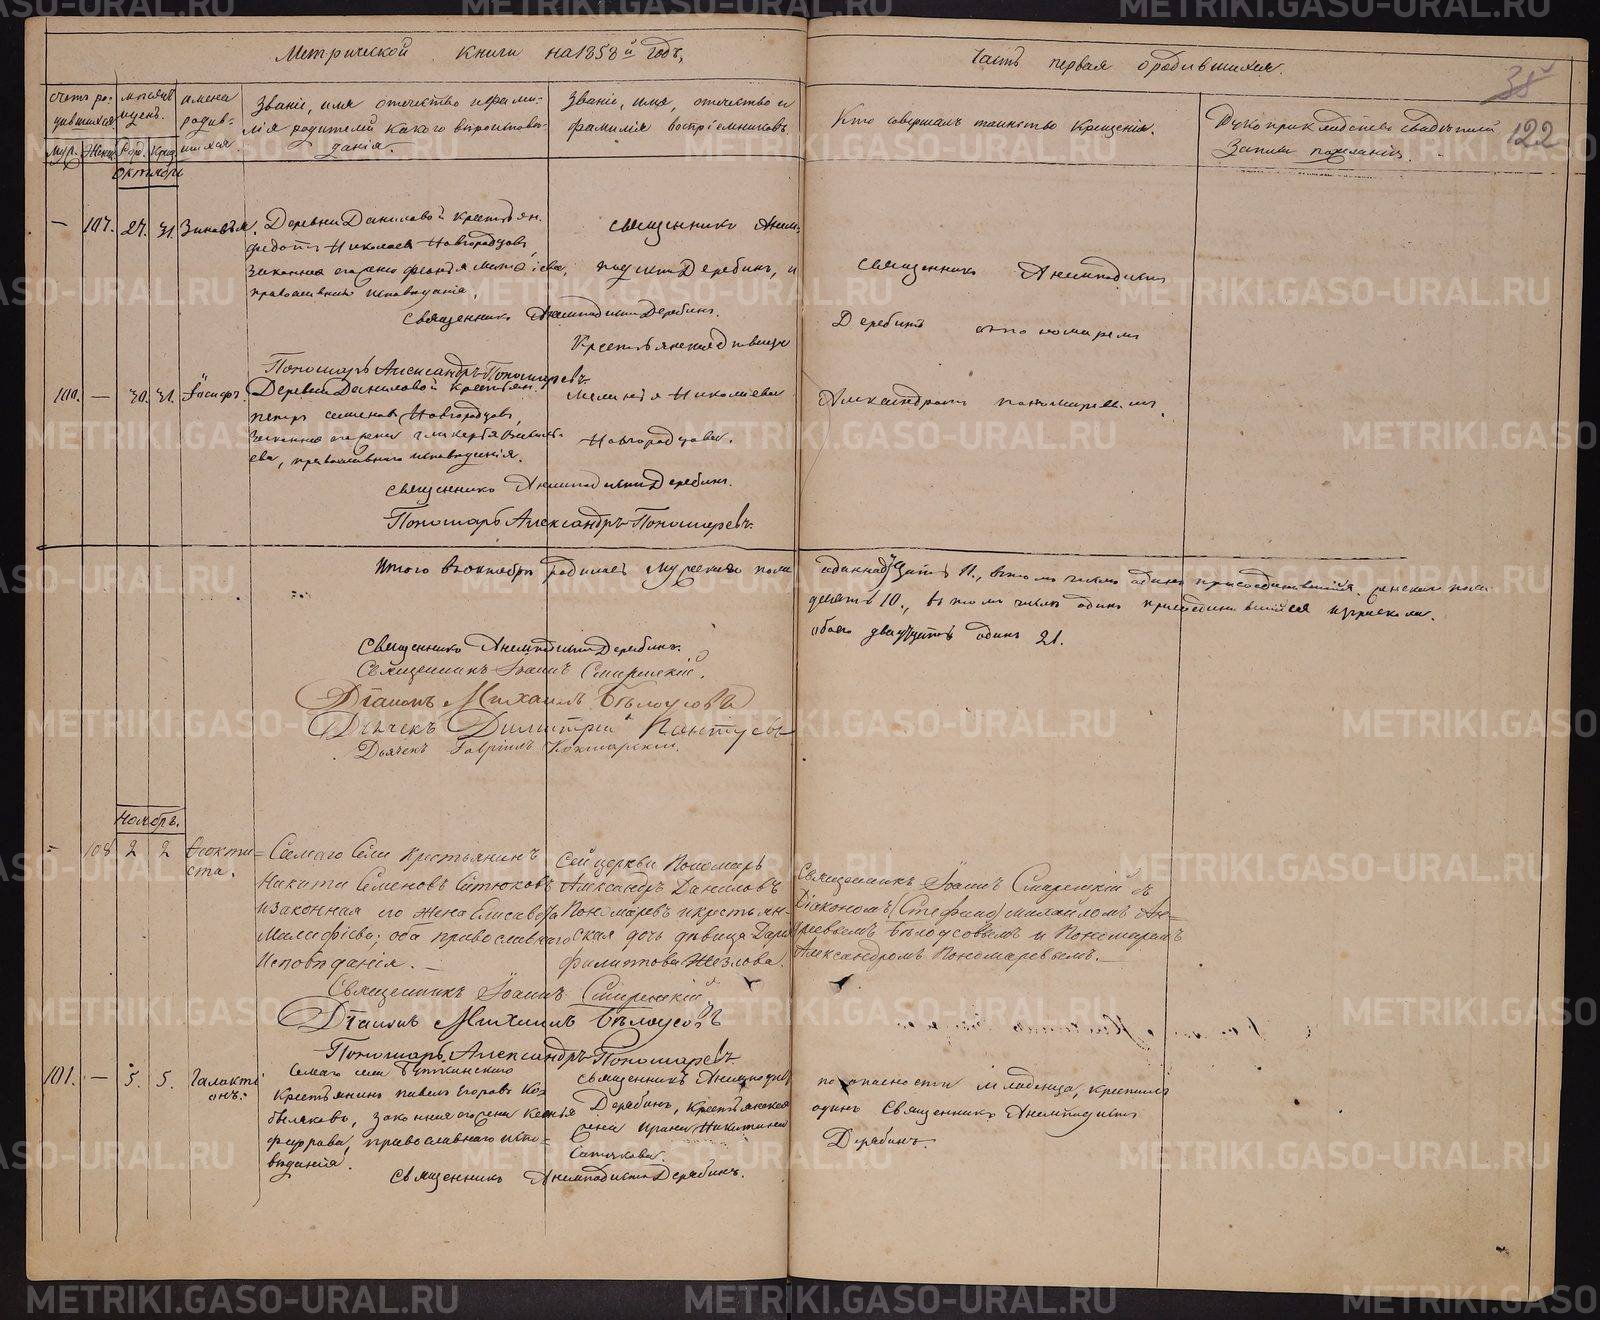 Метрической книги на 1858й годъ,
Часть первая о родившихся.
38
122
счетъ ро-
дившихся.
Муж. Жен.
месяцъ
и день.
Рожд. Крещ.
имена
родив-
шихся.
Званіе, имя отечество и фами-
лія родителей какого вероиспове-
данія.
Званіе, имя, отечество и
фамилія воспріемниковъ
Кто совершалъ таинство Крещенія.
Рукоприкладство свидетелей
записи по желанію.
Октябрь
— 107. 27. 31. Зиновья.
Деревни Даниловой крестьян.
Федотъ Николаев Новгородцовъ,
законная его жена
православнаго исповеданія,
Священникъ Анемподистъ Дерябинъ.
Пономарь Александръ Пономаревъ
священникъ Анем-
подистъ Дерябинъ, и
Крестьянская девица
Меланія Николаева
Новгородцова.
священникъ Анемподистъ
Дерябинъ съ пономаремъ
Александромъ пономаревымъ.
100. — 30. 31. Іосифъ
Деревни Даниловой крестьян.
петръ семеновъ Новгородцовъ,
законная его жена гликерья
ева, православнаго исповеданія.
священникъ Анемподистъ Дерябинъ.
Пономарь Александръ Пономаревъ.
Итого въ октябре родилось мужеска пола
одиннадцать 11., въ томъ числе одинъ присоединившійся. женска пола
десять 10., въ томъ числе одинъ присоединившійся
обоего двадцать одинъ 21.
Священникъ Анемподистъ Дерябинъ.
Священникъ Іоаннъ Смиренскій.
Діаконъ Михаилъ Белоусовъ
Дьячекъ Димитрій
Дьячекъ Гавріилъ
Ноябрь.
108 2 2 Феокти-
ста.
Самаго Села Крестьянинъ
Никита Семеновъ Ситюковъ
и законная его жена Елисавета
оба православнаго
Исповеданія.
Священникъ Іоаннъ Смиренскій
Діаконъ Михаилъ Белоусовъ
Пономарь Александръ Пономаревъ
Сей церкви Пономарь
Александръ Даниловъ
Пономаревъ и крестьян-
ская дочь девица Дарья
Филиппова Жезлова.
Священникъ Іоаннъ Смиренскій съ
Діакономъ (Стефано) михайломъ Ан-
дреевымъ Белоусовымъ и Пономаремъ
Александромъ Пономаревымъ.
101. — 5. 5. Галакті-
онъ.
Самаго села
Крестьянинъ павелъ Егоровъ Ко-
быляковъ, законная его жена Ксенія
федорова, православнаго испо-
веданія.
Священникъ Анемподистъ Дерябинъ.
священникъ Анемподистъ
Дерябинъ, Крестьянская
жена Ирина Никитина
по опасности младенца, крестилъ
одинъ Священникъ Анемподистъ
Дерябинъ
METRIKI.GASO-URAL.RU